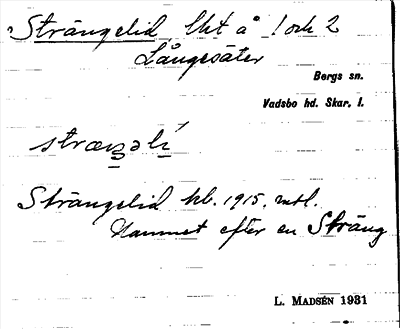 Strängelid lht å 1 och 2
Långesäter
Bergs sn.
Vadsbo hd. Skar. l.
Strängelid hb. 1915. mtl.
Namnet efter en Sträng
L. MADSÉN 1931